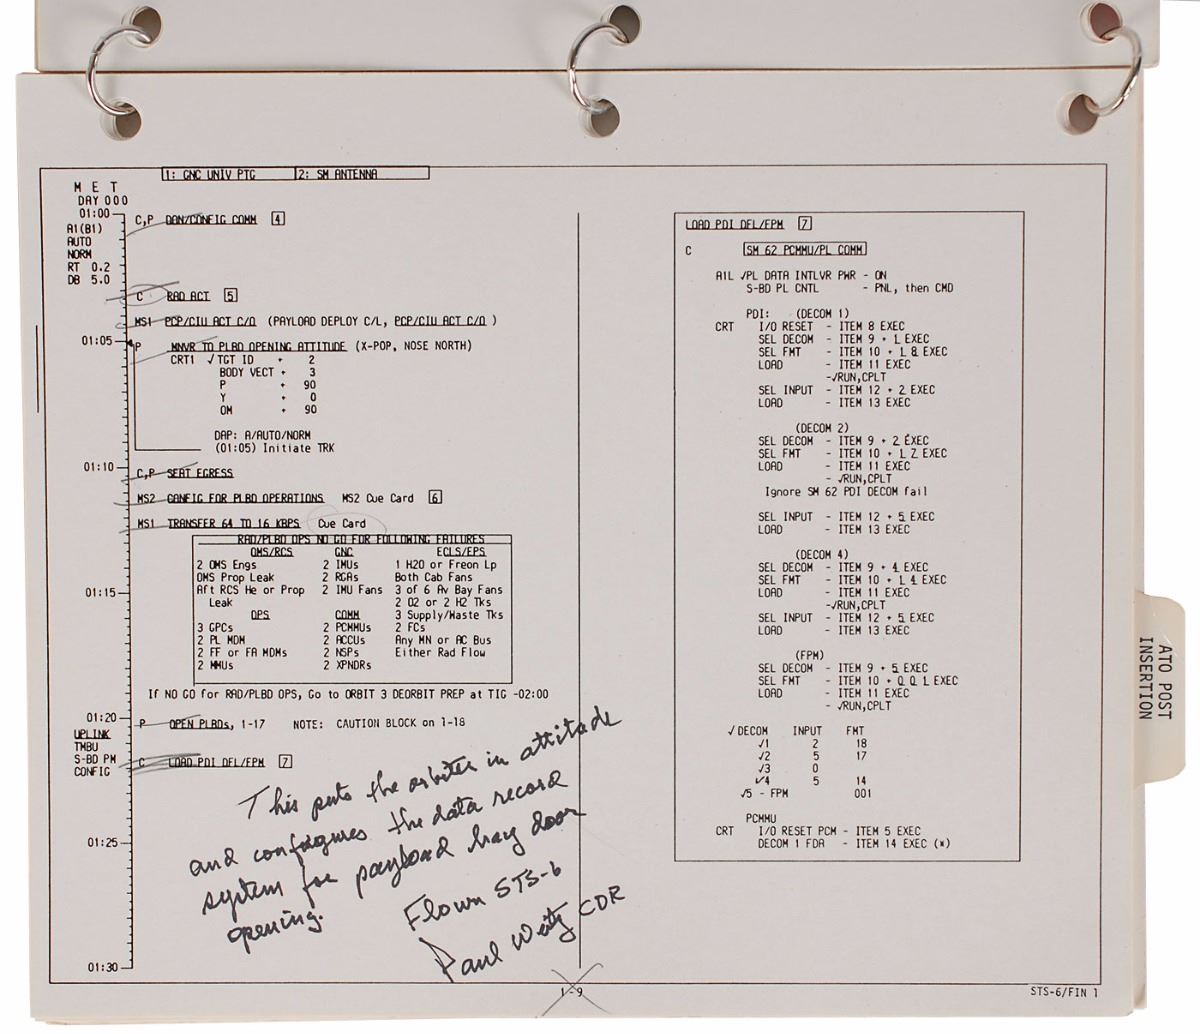 1: GNC UNIV PTG 2: SM ANTENNA
M E T
DAY 000
01:00
A1(B1)
AUTO
NORM
RT 0.2
DB 5.0
C,P DAN/CONFIG COMM 4
C RAD ACT 5
MS1 PCP/CIU ACT C/O (PAYLOAD DEPLOY C/L, PCP/CIU ACT C/O )
01:05
P MNVR TO PLBD OPENING ATTITUDE (X-POP, NOSE NORTH)
CRT1 √ TGT ID + 2
BODY VECT + 3
P + 90
Y + 0
OM + 90
DAP: A/AUTO/NORM
(01:05) Initiate TRK
01:10
C,P SEAT EGRESS
MS2 CONFIG FOR PLBD OPERATIONS MS2 Cue Card 6
MS1 TRANSFER 64 TO 16 KBPS Cue Card
RAD/PLBD OPS NO GO FOR FOLLOWING FAILURES
OMS/RCS GNC ECLS/EPS
2 OMS Engs 2 IMUs 1 H2O or Freon Lp
OMS Prop Leak 2 RGAs Both Cab Fans
Aft RCS He or Prop 2 IMU Fans 3 of 6 Av Bay Fans
Leak 2 O2 or 2 H2 Tks
DPS COMM 3 Supply/Waste Tks
3 GPCs 2 PCMMUs 2 FCs
2 PL MDM 2 ACCUs Any MN or AC Bus
2 FF or FA MDMs 2 NSPs Either Rad Flow
2 MMUs 2 XPNDRs
01:15
If NO GO for RAD/PLBD OPS, Go to ORBIT 3 DEORBIT PREP at TIG -02:00
01:20
P OPEN PLBDs, 1-17 NOTE: CAUTION BLOCK on 1-18
UPLINK
TMBU
S-BD PM
CONFIG
C LOAD PDI DFL/FPM 7
This puts the orbiter in attitude
and configures the data record
system for payload bay door
opening.
Flown STS-6
Paul Weitz CDR
01:25
01:30
LOAD PDI DFL/FPM 7
C SM 62 PCMMU/PL COMM
A1L √PL DATA INTLVR PWR - ON
S-BD PL CNTL - PNL, then CMD
PDI: (DECOM 1)
CRT I/O RESET - ITEM 8 EXEC
SEL DECOM - ITEM 9 + 1 EXEC
SEL FMT - ITEM 10 + 1 8 EXEC
LOAD - ITEM 11 EXEC
-√RUN,CPLT
SEL INPUT - ITEM 12 + 2 EXEC
LOAD - ITEM 13 EXEC
(DECOM 2)
SEL DECOM - ITEM 9 + 2 EXEC
SEL FMT - ITEM 10 + 1 7 EXEC
LOAD - ITEM 11 EXEC
- √RUN,CPLT
Ignore SM 62 PDI DECOM fail
SEL INPUT - ITEM 12 + 5 EXEC
LOAD - ITEM 13 EXEC
(DECOM 4)
SEL DECOM - ITEM 9 + 4 EXEC
SEL FMT - ITEM 10 + 1 4 EXEC
LOAD - ITEM 11 EXEC
-√RUN,CPLT
SEL INPUT - ITEM 12 + 5 EXEC
LOAD - ITEM 13 EXEC
(FPM)
SEL DECOM - ITEM 9 + 5 EXEC
SEL FMT - ITEM 10 + 0 0 1 EXEC
LOAD - ITEM 11 EXEC
- √RUN,CPLT
√DECOM INPUT FMT
√1 2 18
√2 5 17
√3 0
√4 5 14
√5 - FPM 001
PCMMU
CRT I/O RESET PCM - ITEM 5 EXEC
DECOM 1 FDA - ITEM 14 EXEC (*)
ATO POST
INSERTION
1-9
STS-6/FIN 1